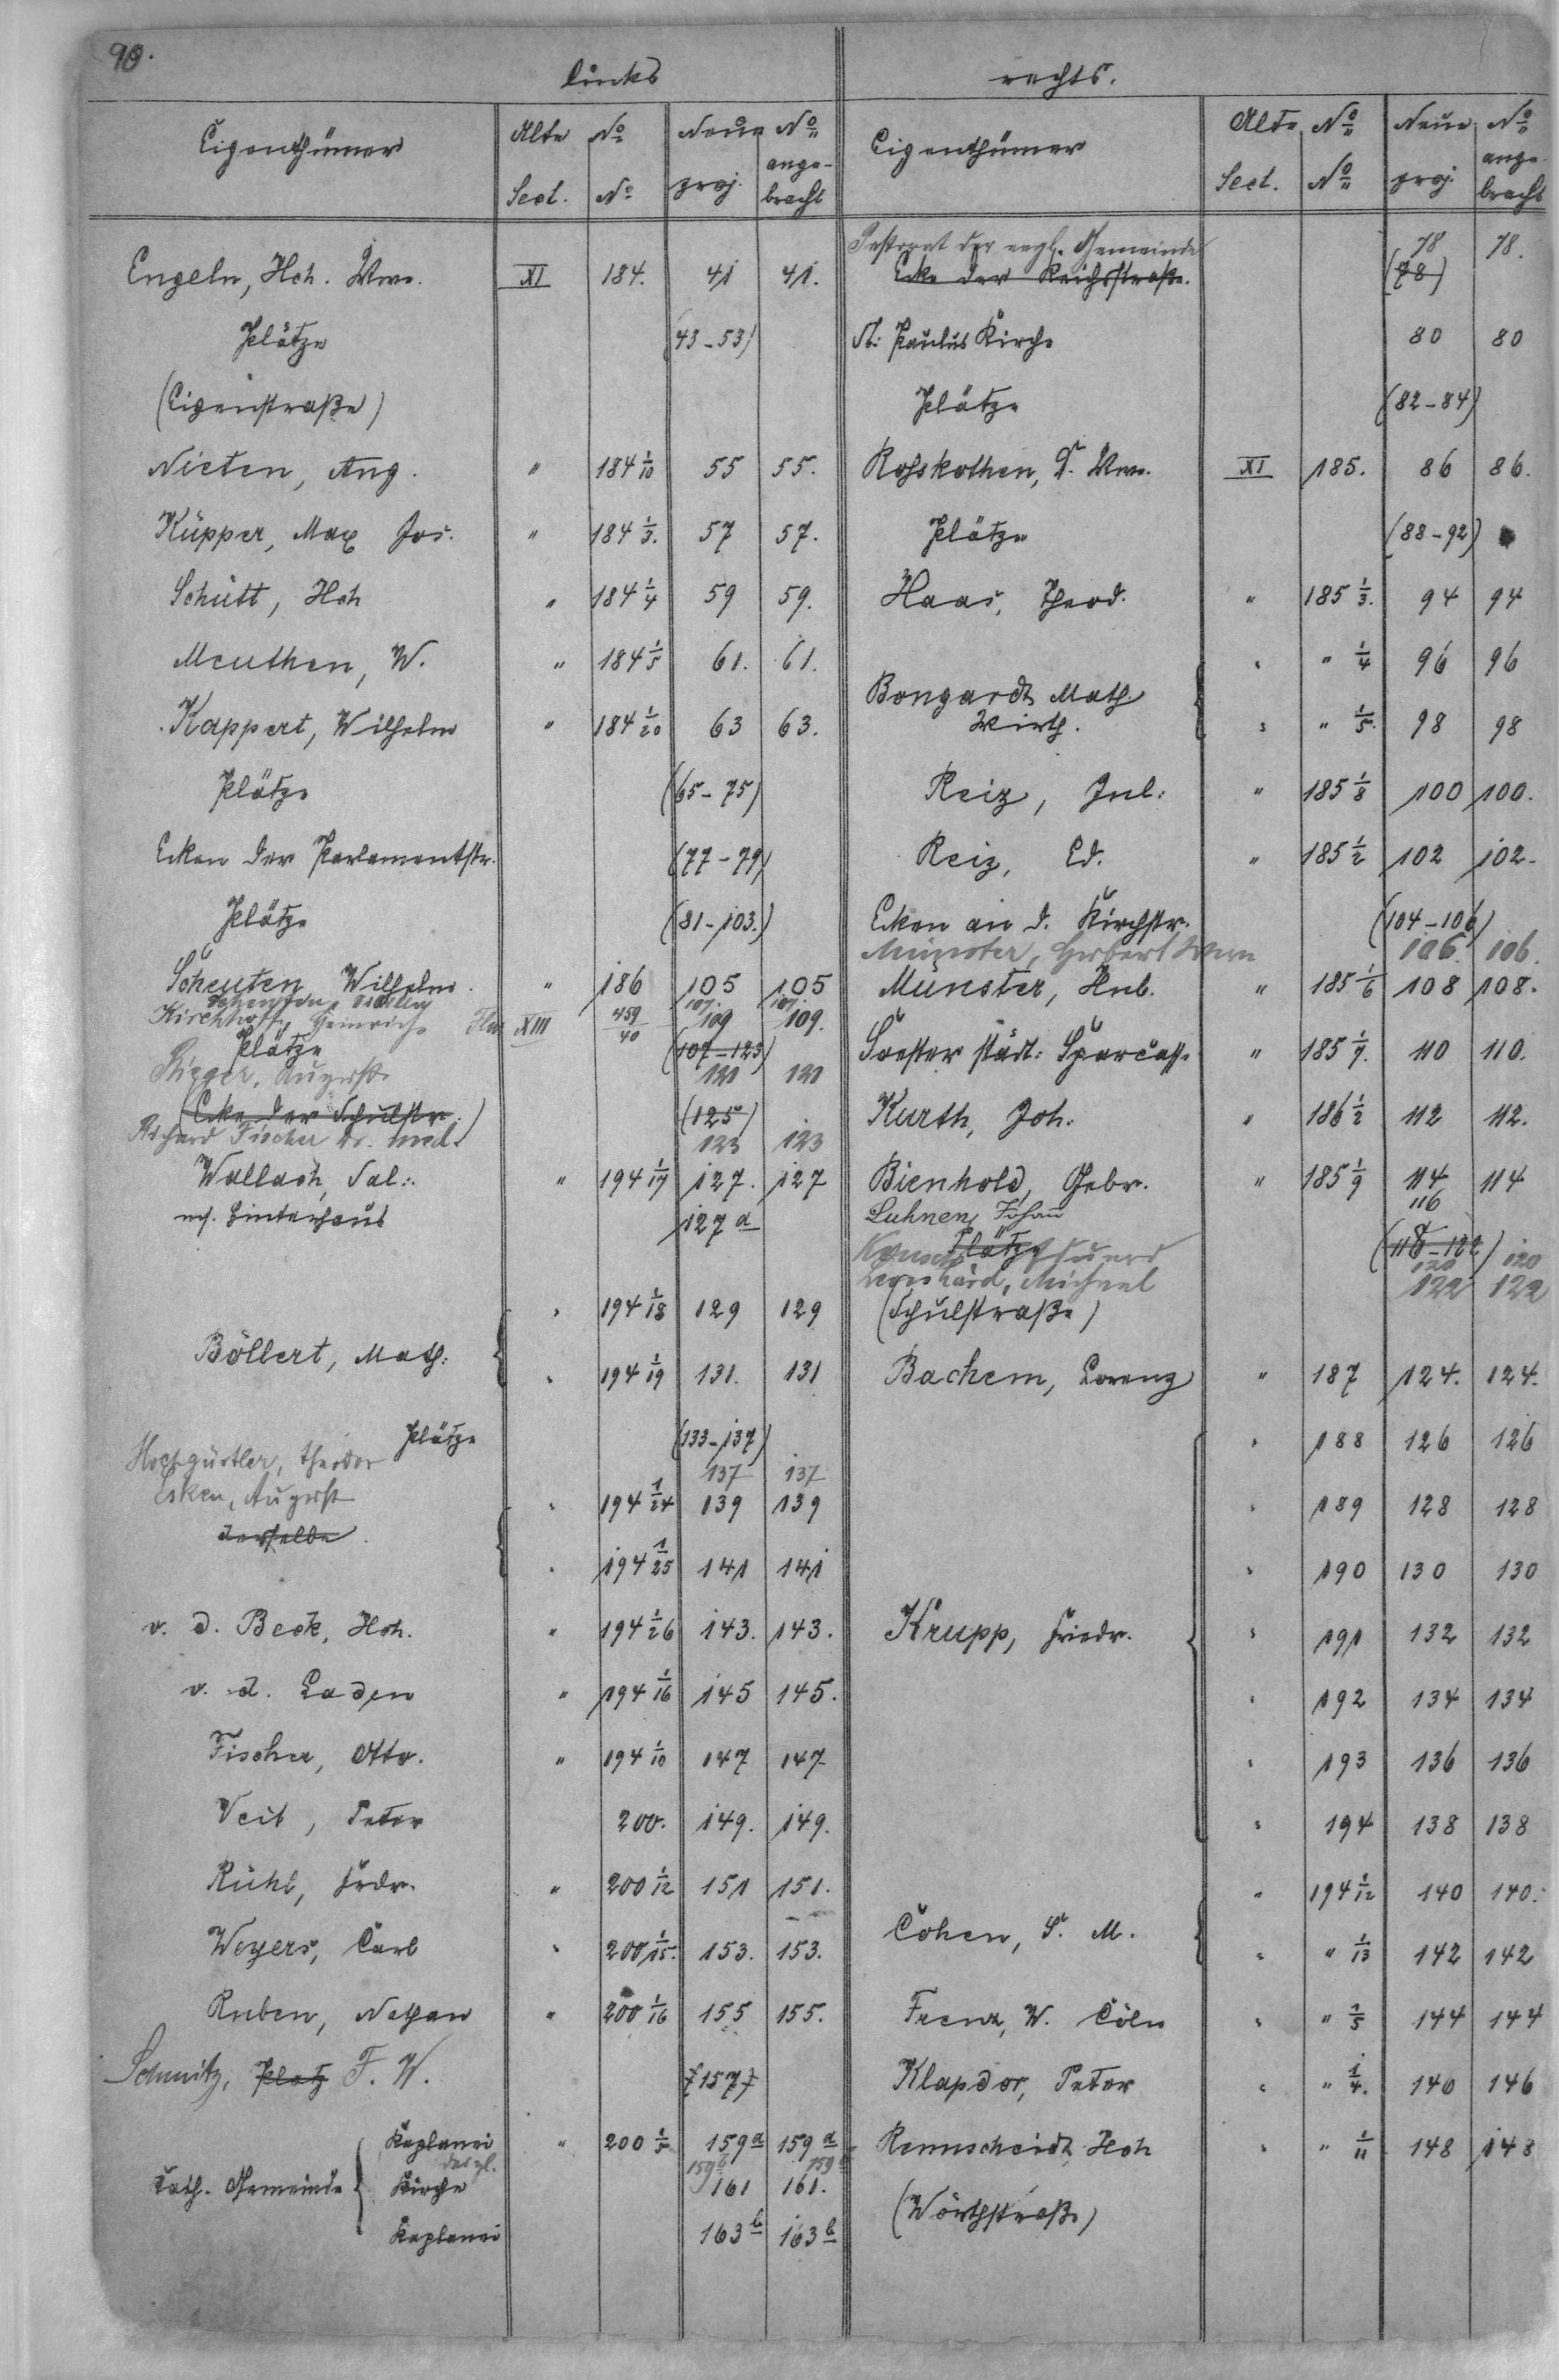 90.
links
Eigenthümer | Alte No Sect. | No | Neue No proj. | angebracht
Engeln, Hch. Wwe. | XI | 184. | 41 | 41.
Plätze | (43-53)
(Eigenstraße)
Nieten, Aug. | " | 184 1/10 | 55 | 55.
Küpper, Max Jos. | " | 184 1/3. | 57 | 57.
Schütt, Hch | " | 184 1/4 | 59 | 59.
Meuthen, W. | " | 184 1/5 | 61. | 61.
Kappert, Wilhelm | " | 184 1/20 | 63 | 63.
Plätze | (65-75)
Ecken der Parlamentstr. | (77-79)
Plätze | (81-103.)
Scheuten, Wilhelm. | " | 186 | 105 | 105
107. | 107.
Kirchhoff, Heinrich | XIII | 459/40 | 109 | 109.
Plätze | (107-123)
August | 121 | 121
(Ecke der Schulstr.) | (125)
Richard Fischer Dr. med. | 123 | 123
Wallach, Sal: | " | 194 1/17 | 127. | 127
Hinterhaus | 127 a
Böllert, Math: | " | 194 1/18 | 129 | 129
" | 194 1/19 | 131. | 131
Plätze | (133-137)
Hochgürtler, Theodor | 137 | 137
Esken, August | " | 194 1/24 | 139 | 139
derselbe. | " | 194 1/25 | 141 | 141
v. d. Beck, Hch. | " | 194 1/26 | 143. | 143.
v. d. Laden | " | 194 1/16 | 145 | 145.
Fischer, Otto. | " | 194 1/10 | 147 | 147
Veit, Peter | 200. | 149. | 149.
Rühl, Frdr. | " | 200 1/12 | 151 | 151.
Weyers, Carl | " | 200 1/15. | 153. | 153.
Ruben, Nathan | " | 200 1/16 | 155 | 155.
Schmitz, Platz F. W. | (157)
Cath. Gemeinde
Kaplanei | " | 200 1/5 | 159 a | 159 a
desgl. | 159 b | 159 b
Kirche | 161 | 161.
Kaplanei | 163 b | 163 b
rechts.
Eigenthümer | Alte No Sect. | No | Neue No proj. | angebracht
Pastorat der evgl. Gemeinde | 78 | 78.
Ecke der Reichsstraße. | (78)
St: Paulus Kirche | 80 | 80
Plätze | (82-84)
Rosskothen, D. Wwe. | XI | 185. | 86 | 86.
Plätze | (88-92)
Haas, Theod. | " | 185 1/3. | 94 | 94
Bongardt, Math. | " | " 1/4 | 96 | 96
Wirth. | " | " 1/5. | 98 | 98
Reiz, Jul: | " | 185 1/8 | 100 | 100.
Reiz, Ed. | " | 185 1/2 | 102 | 102.
Ecken an d. Kirchstr. | (104-106)
Münster, Herbert Wwe | 106. | 106.
Münster, Hub. | " | 185 1/6 | 108 | 108.
Soester städt: Sparcasse | " | 185 1/7. | 110 | 110.
Kurth, Joh. | " | 186 1/2 | 112 | 112.
Bienhold, Gebr. | " | 185 1/9 | 114 | 114
Luhnen, Johan | 116
Plätze | (118-122)
Eduard | 120 | 120
Leonhard, Michael | 122 | 122
(Schulstraße)
Bachem, Lorenz | " | 187 | 124. | 124.
Krupp, Friedr. | " | 188 | 126 | 126
" | 189 | 128 | 128
" | 190 | 130 | 130
" | 191 | 132 | 132
" | 192 | 134 | 134
" | 193 | 136 | 136
" | 194 | 138 | 138
Cohen, S. M. | " | 194 1/12 | 140 | 140.
" | " 1/13 | 142 | 142
Frenz, W. Cöln | " | " 1/5 | 144 | 144
Klapdor, Peter | " | " 1/4. | 146 | 146
Remscheidt, Hch | " | " 1/11 | 148 | 148
(Wörthstraße)